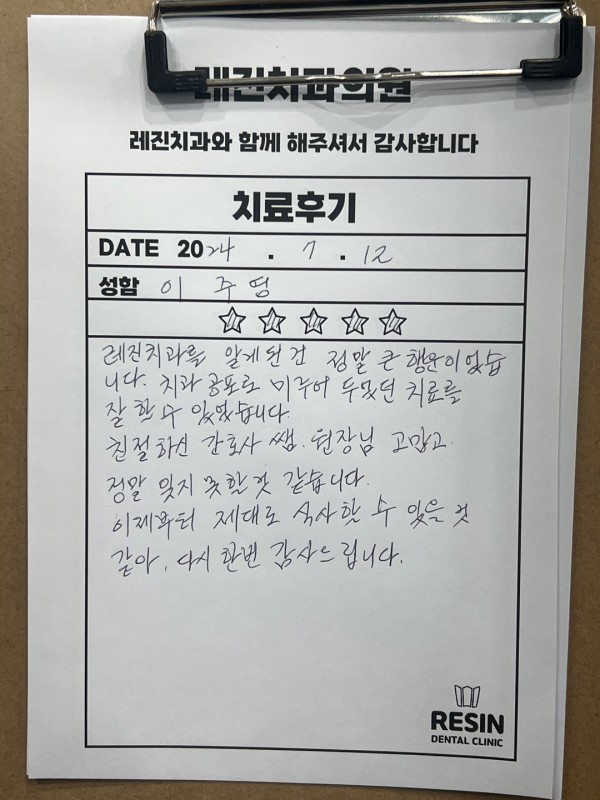 레진치과의원
레진치과와 함께 해주셔서 감사합니다
치료후기
DATE 2024 . 7 . 12
성함 이 주영
레진치과를 알게된건 정말 큰 행운이었습
니다. 치과 공포로 미루어 두었던 치료를
잘 할 수 있었습니다.
친절하신 간호사 쌤. 원장님 고맙고
정말 잊지 못할것 같습니다.
이제부터 제대로 식사할 수 있을 것
같아. 다시 한번 감사드립니다.
RESIN
DENTAL CLINIC